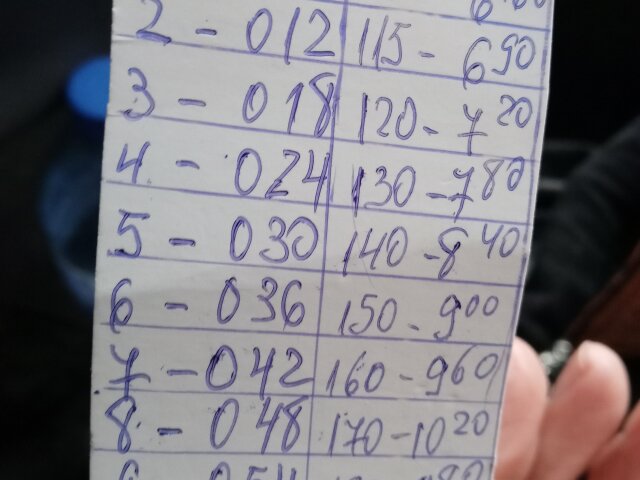 2 - 012 115 - 6 90
3 - 018 120 - 7 20
4 - 024 130 - 7 80
5 - 030 140 - 8 40
6 - 036 150 - 9 00
7 - 042 160 - 9 60
8 - 048 170 - 10 20